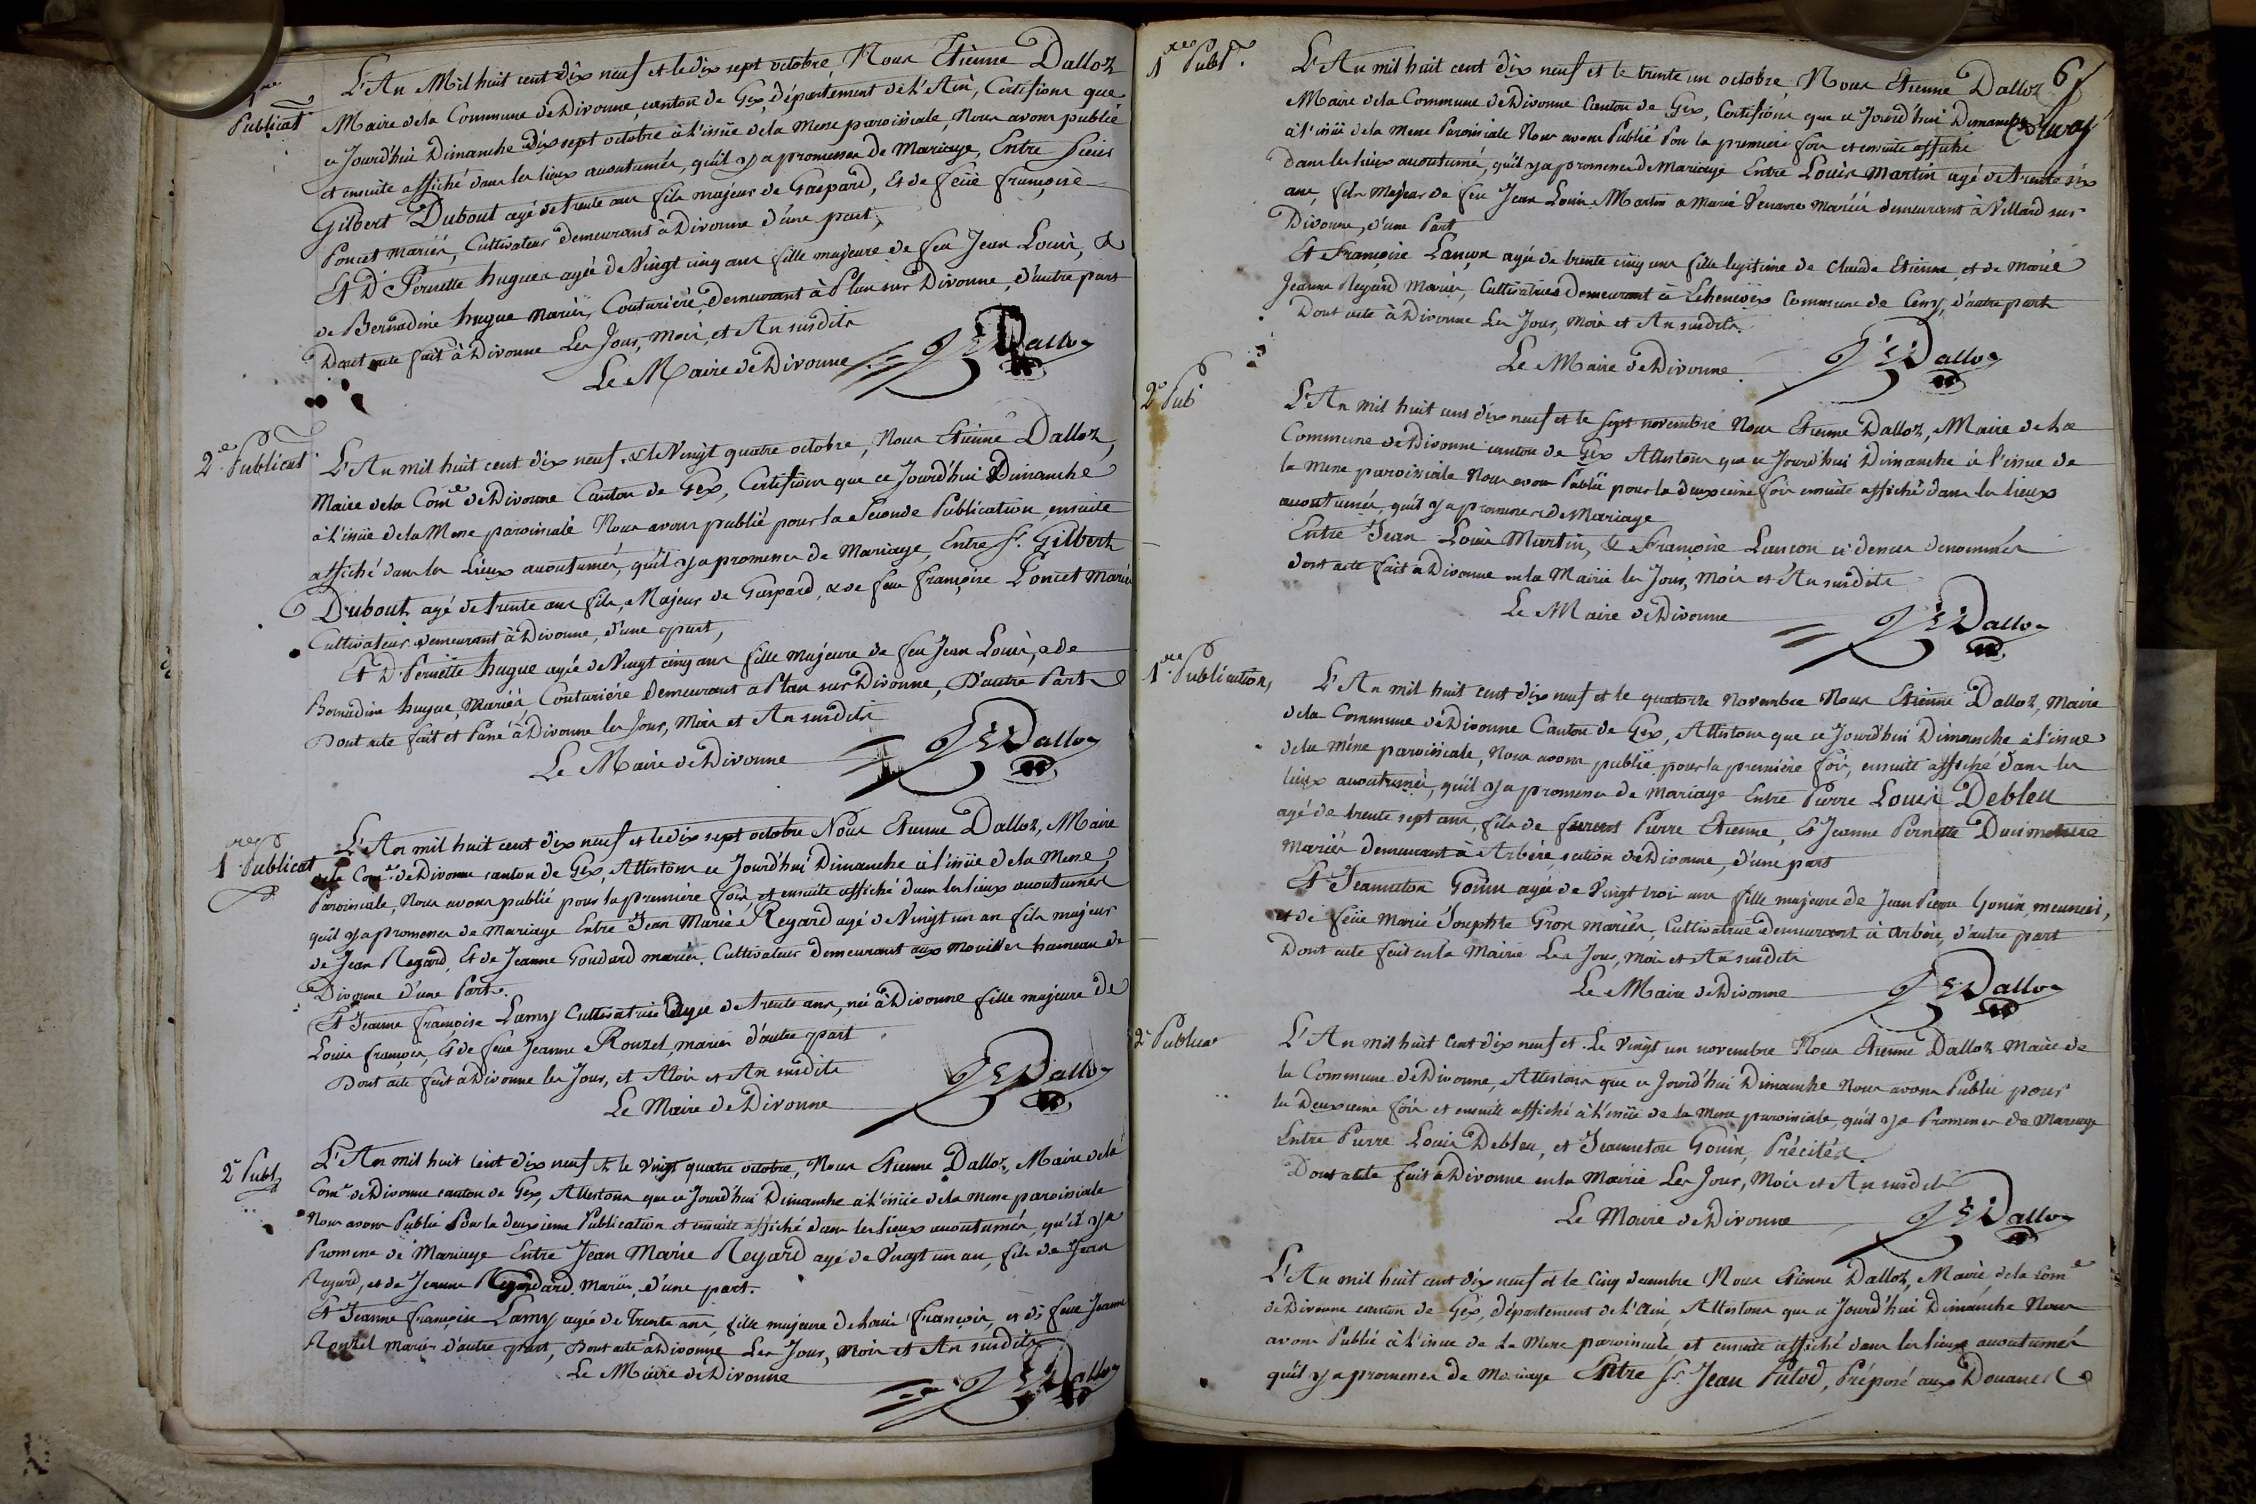 1re
Publicat
L'An Mil huit cent dix neuf et le dix sept octobre, Nous Etienne Dalloz
Maire de la Commune de Divonne, canton de Gex, département de l'Ain, Certifions que
ce Jourd'hui Dimanche dix sept octobre à l'issüe de la Messe paroissiale, Nous avons publié
et ensuite affiché dans les lieux accoutumés, qu'il y a promesses de Mariage, Entre sieur
Gilbert Dubout agé de trente ans fils majeur de Gaspard, Et de feüe françoise
Poncet mariés, Cultivateur demeurant à Divonne d'une part,
Et De Pernette hugues agée de Vingt cinq ans fille majeure de feu Jean Louis, &
de Bernadine hugue mariés, Couturière, demeurant à Plan sur Divonne, d'autre part
Dont acte fait à Divonne Les Jour, Mois, et An susdits
Le Maire de Divonne Dalloz
2e Publicat
L'An mil huit cent dix neuf, & le Vingt quatre octobre, Nous Etienne Dalloz,
Maire de la Come de Divonne Canton de Gex, Certifions que ce Jourd'hui Dimanche
à l'issüe de la Messe paroissiale Nous avons publié pour la Seconde Publication, ensuite
affiché dans les Lieux accoutumés, qu'il y a promesses de Mariage, Entre Sr. Gilbert
Dubout agé de trente ans fils, Majeur de Gaspard, & de feue françoise Poncet Mariés
Cultivateur demeurant à Divonne, d'une part,
Et De Pernette hugue agée de Vingt cinq ans fille Majeure de feu Jean Louis, & de
Bernadine hugue, Mariés, Couturière demeurant à Plan sur Divonne, D'autre Part
Dont acte fait et Passé à Divonne les Jour, Mois et An susdits
Le Maire de Divonne Dalloz
1re Publicat
L'An mil huit cent dix neuf et le dix sept octobre Nous Etienne Dalloz, Maire
de la Come de Divonne canton de Gex, Attestons ce Jourd'hui Dimanche à l'issüe de la Messe
Paroissiale, Nous avons publié pour la première fois et ensuite affiché dans les lieux accoutumés
qu'il y a promesses de Mariage Entre Jean Marie Regard agé de Vingt un an fils majeur
de Jean Regard, Et de Jeanne Goudard mariés. Cultivateur demeurant aux mouilles hameau de
Divonne d'une Part.
Et Jeanne françoise Lamy Cultivatrice Agée de trente ans, née à Divonne fille majeure de
Louis françois, Et de feue Jeanne Rouzet, mariés d'autre part
Dont acte fait à Divonne les Jour, et Mois et An susdits
Le Maire de Divonne Dalloz
2e Publ
L'An mil huit cent dix neuf & le Vingt quatre octobre, Nous Etienne Dalloz, Maire de la
Come de Divonne canton de Gex, Attestons que ce Jourd'hui Dimanche à l'issüe de la Messe paroissiale
Nous avons Publié Pour la deuxieme Publication et ensuite affiché dans les lieux accoutumés, qu'il y a
Promesse de Mariage Entre Jean Marie Regard agé de Vingt un an, fils de Jean
Regard, et de Jeanne Mariés, d'une part.
Et Jeanne françoise Lamy agée de Trente ans, fille majeure de Louis françois, et de feue Jeanne
Rouzet mariés d'autre part, Dont acte à Divonne Les Jour, Mois et An susdits
Le Maire de Divonne Dalloz
1re Publ.
L'An mil huit cent dix neuf et le trente un octobre Nous Etienne Dalloz
Maire de la Commune de Divonne Canton de Gex, Certifions que ce Jourd'hui Dimanche
à l'issüe de la Messe Paroissiale Nous avons Publié Pour la première fois et ensuite affiché
dans les lieux accoutumé, qu'il y a promesses de Mariage Entre Louis Martin agé de trente six
ans, fils Majeur de feu Jean Louis Martin & Marie mariés demeurant à Villard sur
Divonne, d'une Part
Et Françoise Lançon agée de trente cinq ans fille legitime de Claude Etienne, et de Marie
Jeanne Regard Mariés, Cultivatrice demeurant à Commune de Cessy, d'autre part
Dont acte à Divonne Les Jour, Mois et An susdits.
Le Maire de Divonne Dalloz
2e Pub
L'An mil huit cent dix neuf et le sept novembre Nous Etienne Dalloz, Maire de La
Commune de Divonne canton de Gex Attestons que ce Jourd'hui Dimanche à l'issue de
la Messe paroissiale Nous avons Publié pour la deuxieme fois ensuite affiché dans les lieux
accoutumés, qu'il y a promesses de Mariage
Entre Jean Louis Martin, & Françoise Lançon ci dessus denommés
dont acte fait à Divonne en la Mairie les Jour, Mois et An susdits
Le Maire de Divonne Dalloz
1re Publication,
L'An mil huit cent dix neuf et le quatorze Novembre Nous Etienne Dalloz, Maire
de la Commune de Divonne Canton de Gex, Attestons que ce Jourd'hui Dimanche à l'issue
de la Messe paroissiale, Nous avons publié pour la première fois, ensuite affiché dans les
lieux accoutumés, qu'il y a promesses de Mariage Entre Pierre Louis Debleu
agé de trente sept ans, fils de Pierre Etienne, Et Jeanne Pernette
Mariés demeurant à Arbère section de Divonne, d'une part
Et Jeanneton Gouin agée de Vingt trois ans fille majeure de Jean Pierre Gouin, meunier,
et de feüe Marie Josephte Gros mariés, Cultivatrice demeurant à Arbère, d'autre part
Dont acte fait en la Mairie Les Jour, Mois et An susdits
Le Maire de Divonne Dalloz
2e Publicat
L'An mil huit Cent dix neuf et Le Vingt un novembre Nous Etienne Dalloz Maire de
la Commune de Divonne, Attestons que ce Jourd'hui Dimanche Nous avons Publié pour
la Deuxieme fois et ensuite affiché à l'issüe de la Messe paroissiale, qu'il y a Promesses de Mariage
Entre Pierre Louis Debleu, et Jeanneton Gouin, Précités.
Dont acte fait à Divonne en la Mairie Les Jour, Mois et An susdits
Le Maire de Divonne Dalloz
L'An mil huit cent dix neuf et le Cinq decembre Nous Etienne Dalloz, Maire de la Come
de Divonne canton de Gex, département de l'Ain, Attestons que ce Jourd'hui Dimanche Nous
avons Publié à l'issue de La Messe paroissiale, et ensuite affiché dans les lieux accoutumés
qu'il y a promesses de Mariage Entre Sr. Jean Pulod, Préposé aux Douanes